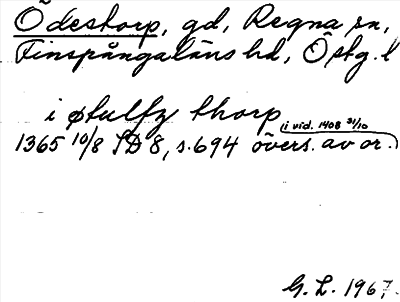 Ödestorp, gd, Regna sn,
Finspångaläns hd, Östg. l
i østulfz thorp
i vid. 1408 31/10
1365 10/8 SD 8, s. 694 övers. av or.
G. L. 1967.